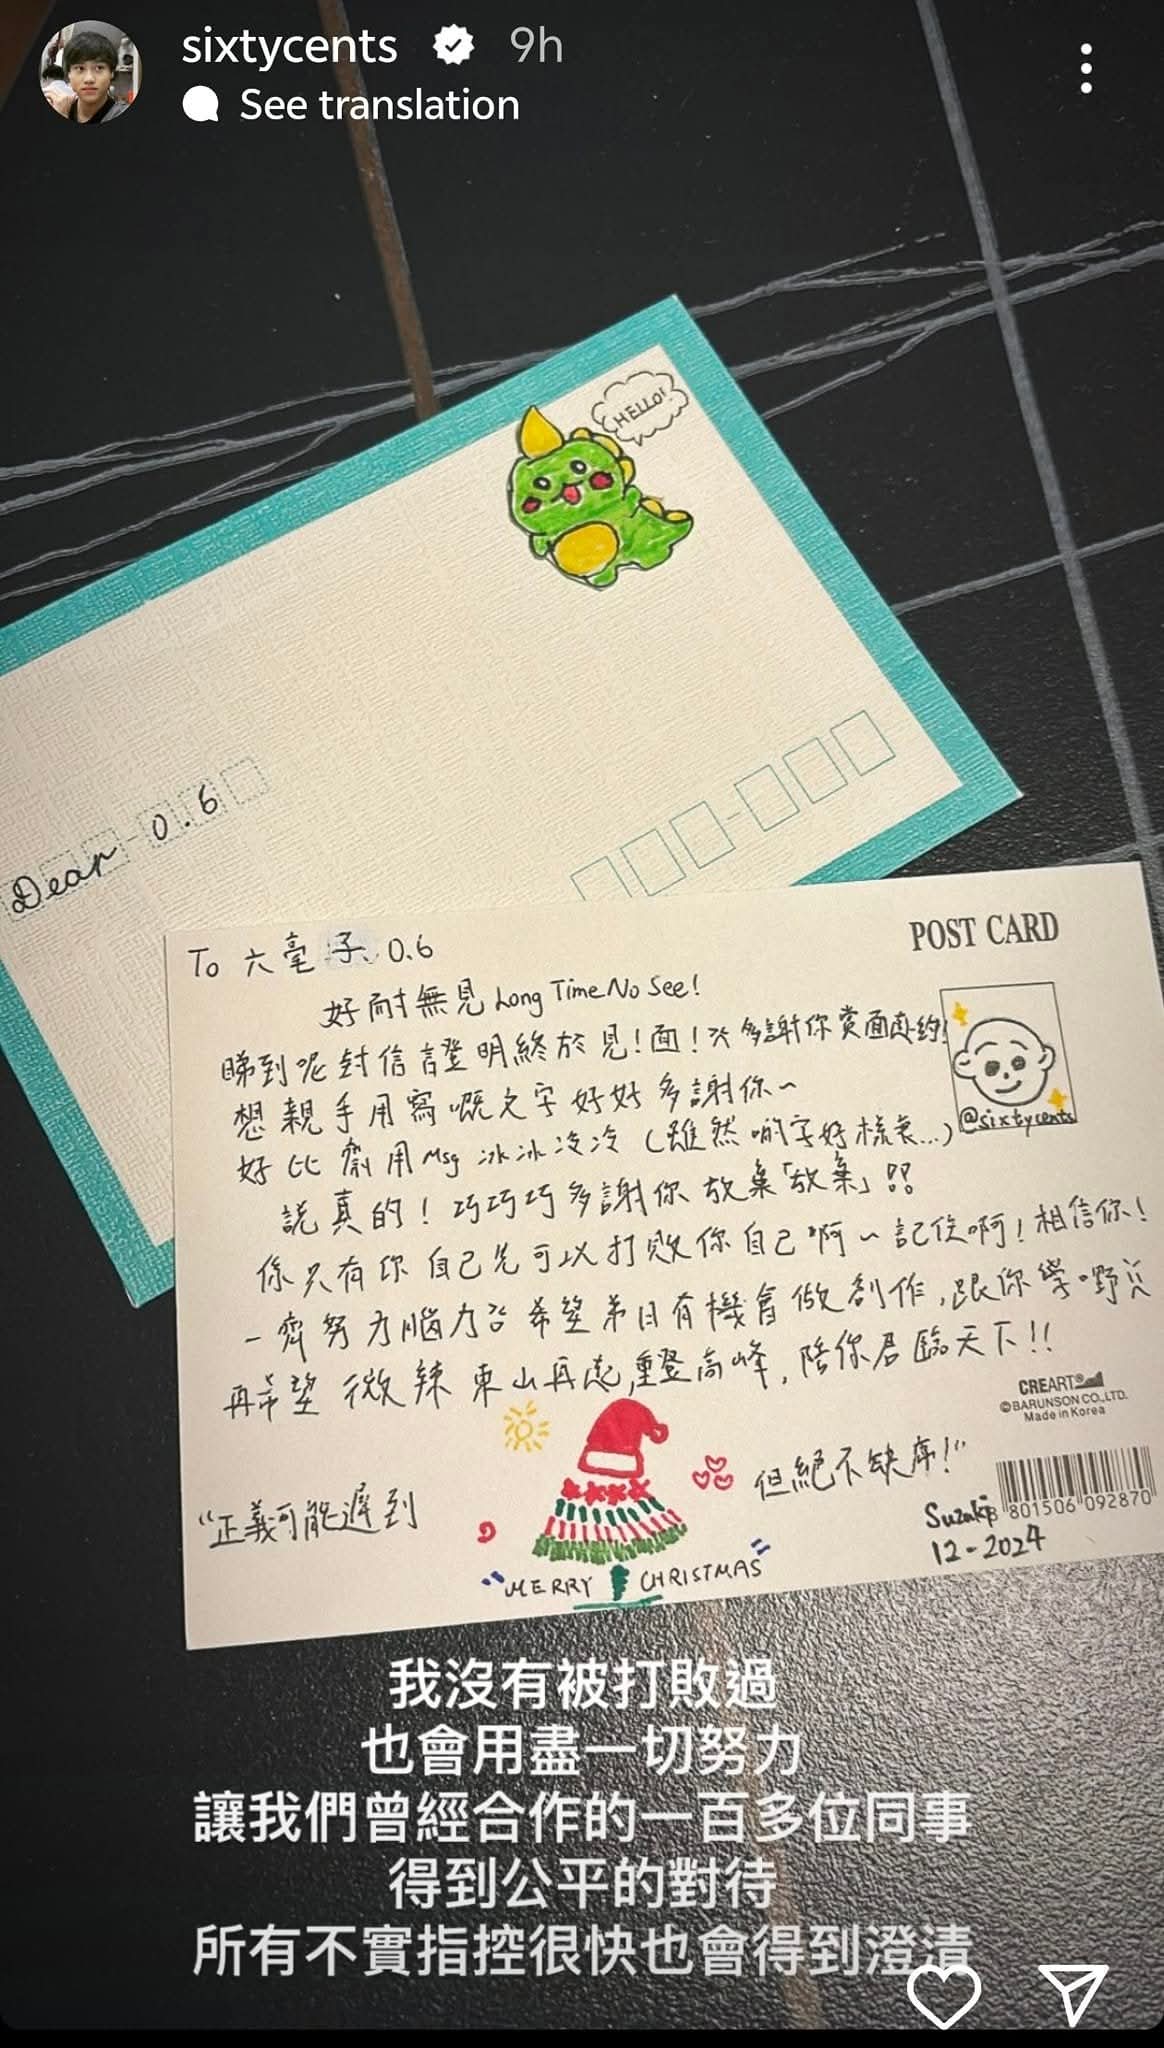 sixtycents 9h
See translation
HELLO!
Dear 0.6
To 六毫子 0.6
POST CARD
好耐無見 Long Time No See!
睇到呢封信證明終於見!面!多謝你賞面赴約!
想親手用寫嘅文字好好多謝你~
@sixtycents
好比齋用 Msg 冰冰冷冷 (雖然啲字好樣衰...)
說真的! 巧巧巧多謝你放棄「放棄」!!
係只有你自己先可以打敗你自己啊~記住啊!相信你!
一齊努力腦力 希望第日有機會做創作,跟你學嘢
再希望 微辣 東山再起,重登高峰,陪你君臨天下!!
CREART
©BARUNSON CO.,LTD.
Made in Korea
"正義可能遲到
但絕不缺席!"
8 801506 092870
Suzuki
12-2024
"MERRY CHRISTMAS"
我沒有被打敗過
也會用盡一切努力
讓我們曾經合作的一百多位同事
得到公平的對待
所有不實指控很快也會得到澄清